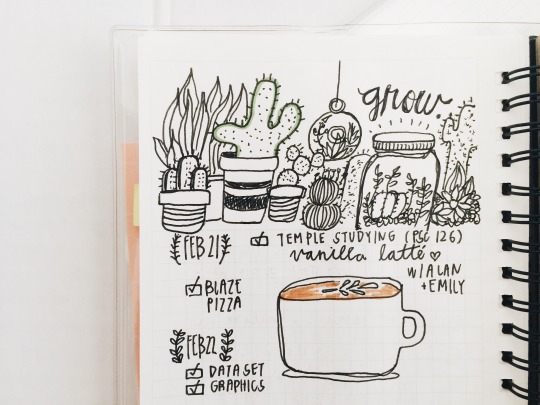 grow.
FEB 21
TEMPLE STUDYING (PSC 126)
vanilla latté
W/ALAN
+EMILY
BLAZE
PIZZA
FEB 22
DATA SET
GRAPHICS